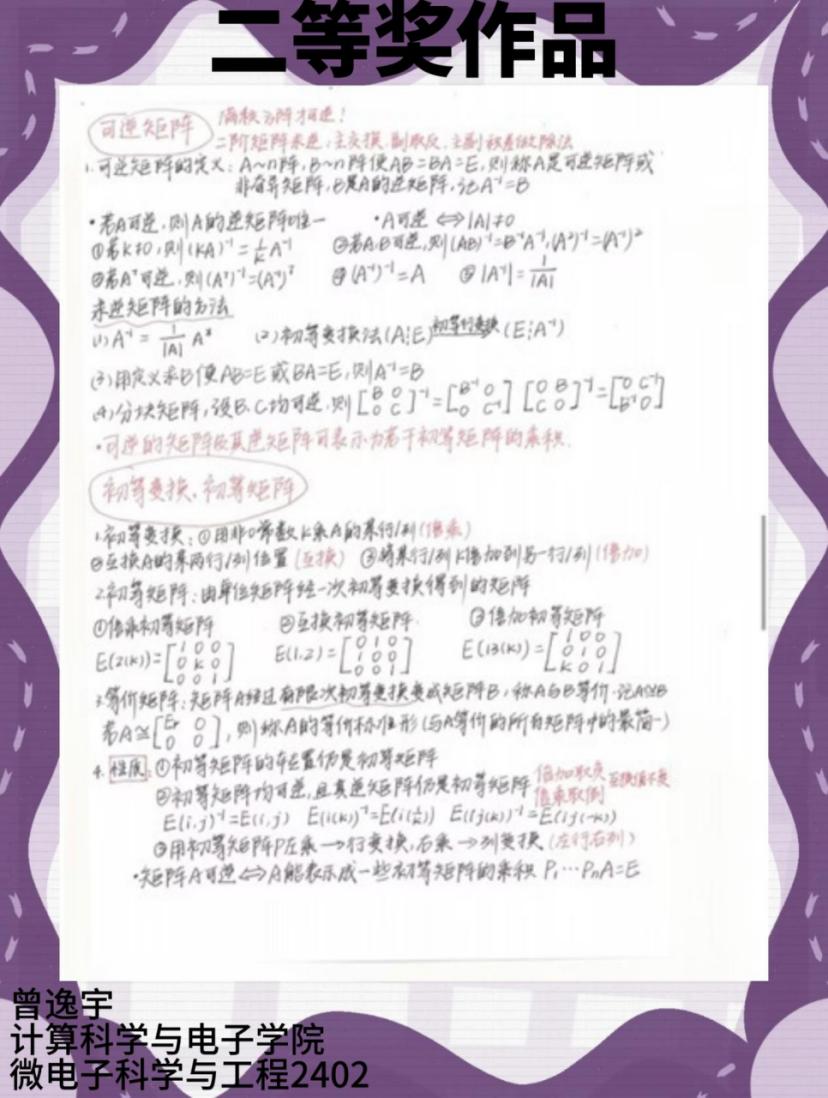 二等奖作品
可逆矩阵
满秩方阵才可逆！
二阶矩阵求逆：主交换，副取反，主副积差做除法
1.可逆矩阵的定义：A~n阵，B~n阵使AB=BA=E，则称A是可逆矩阵或
非奇异矩阵，B是A的逆矩阵，记A⁻¹=B
·若A可逆，则A的逆矩阵唯一 ·A可逆⇔|A|≠0
①若k≠0，则(kA)⁻¹=1/k A⁻¹ ②若A.B可逆，则(AB)⁻¹=B⁻¹A⁻¹，(A²)⁻¹=(A⁻¹)²
③若Aᵀ可逆，则(Aᵀ)⁻¹=(A⁻¹)ᵀ ④(A⁻¹)⁻¹=A ⑤|A⁻¹|=1/|A|
求逆矩阵的方法
(1)A⁻¹=1/|A| A* (2)初等变换法(A⋮E)初等行变换(E⋮A⁻¹)
(3)用定义求B使AB=E或BA=E，则A⁻¹=B
(4)分块矩阵，设B.C均可逆，则[B 0; 0 C]⁻¹=[B⁻¹ 0; 0 C⁻¹] [0 B; C 0]⁻¹=[0 C⁻¹; B⁻¹ 0]
·可逆的矩阵及其逆矩阵可表示为若干初等矩阵的乘积.
初等变换、初等矩阵
1.初等变换：①用非0常数k乘A的某行/列(倍乘)
②互换A的某两行/列位置(互换) ③将某行/列k倍加到另一行/列(倍加)
2.初等矩阵：由单位矩阵经一次初等变换得到的矩阵
①倍乘初等矩阵 ②互换初等矩阵 ③倍加初等矩阵
E(2(k))=[1 0 0; 0 k 0; 0 0 1] E(1,2)=[0 1 0; 1 0 0; 0 0 1] E(13(k))=[1 0 0; 0 1 0; k 0 1]
3.等价矩阵：矩阵A经过有限次初等变换变成矩阵B，称A与B等价.记A≅B
若A≅[Er 0; 0 0]，则称A的等价标准形(与A等价的所有矩阵中的最简一)
4.性质：①初等矩阵的转置仍是初等矩阵
②初等矩阵均可逆，且其逆矩阵仍是初等矩阵 倍加取反 互换值不变
倍乘取倒
E(i,j)⁻¹=E(i,j) E(i(k))⁻¹=E(i(1/k)) E(ij(k))⁻¹=E(ij(-k))
③用初等矩阵P左乘→行变换，右乘→列变换(左行右列)
·矩阵A可逆⇔A能表示成一些初等矩阵的乘积 P₁…PnA=E
曾逸宇
计算科学与电子学院
微电子科学与工程2402